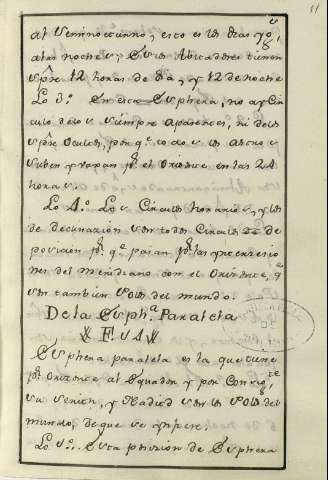 11
al semidiurno, esto es los dias yg.
alas noches; Esus Abitadores tienen
spre. 12 horas de dia, y 12 de noche
Lo 3º. En esta Esphera, no ay Cir
culo delos siempre aparentes, ni delos
spre. Ocultos, porq.e todos los astros
suben y vajan pr. el Orizonte en las 24
horas.
Lo 4º. Los Circulos horarios, y los
de declinación son todos Circulos de
posicion pr. q.e pasan pr. las ynterseccio
nes del Meridiano con el Orizonte, q.e
son tambien Polos del mundo.
De la Esph.a Paralela
Esphera paralela es la que tiene
pr. Orizonte al Equador y por Consig.te
su Zenith, y Nadir son los Polos del
mundo, deque se ynfiere;
Lo 1º. Esta posision de Esphera